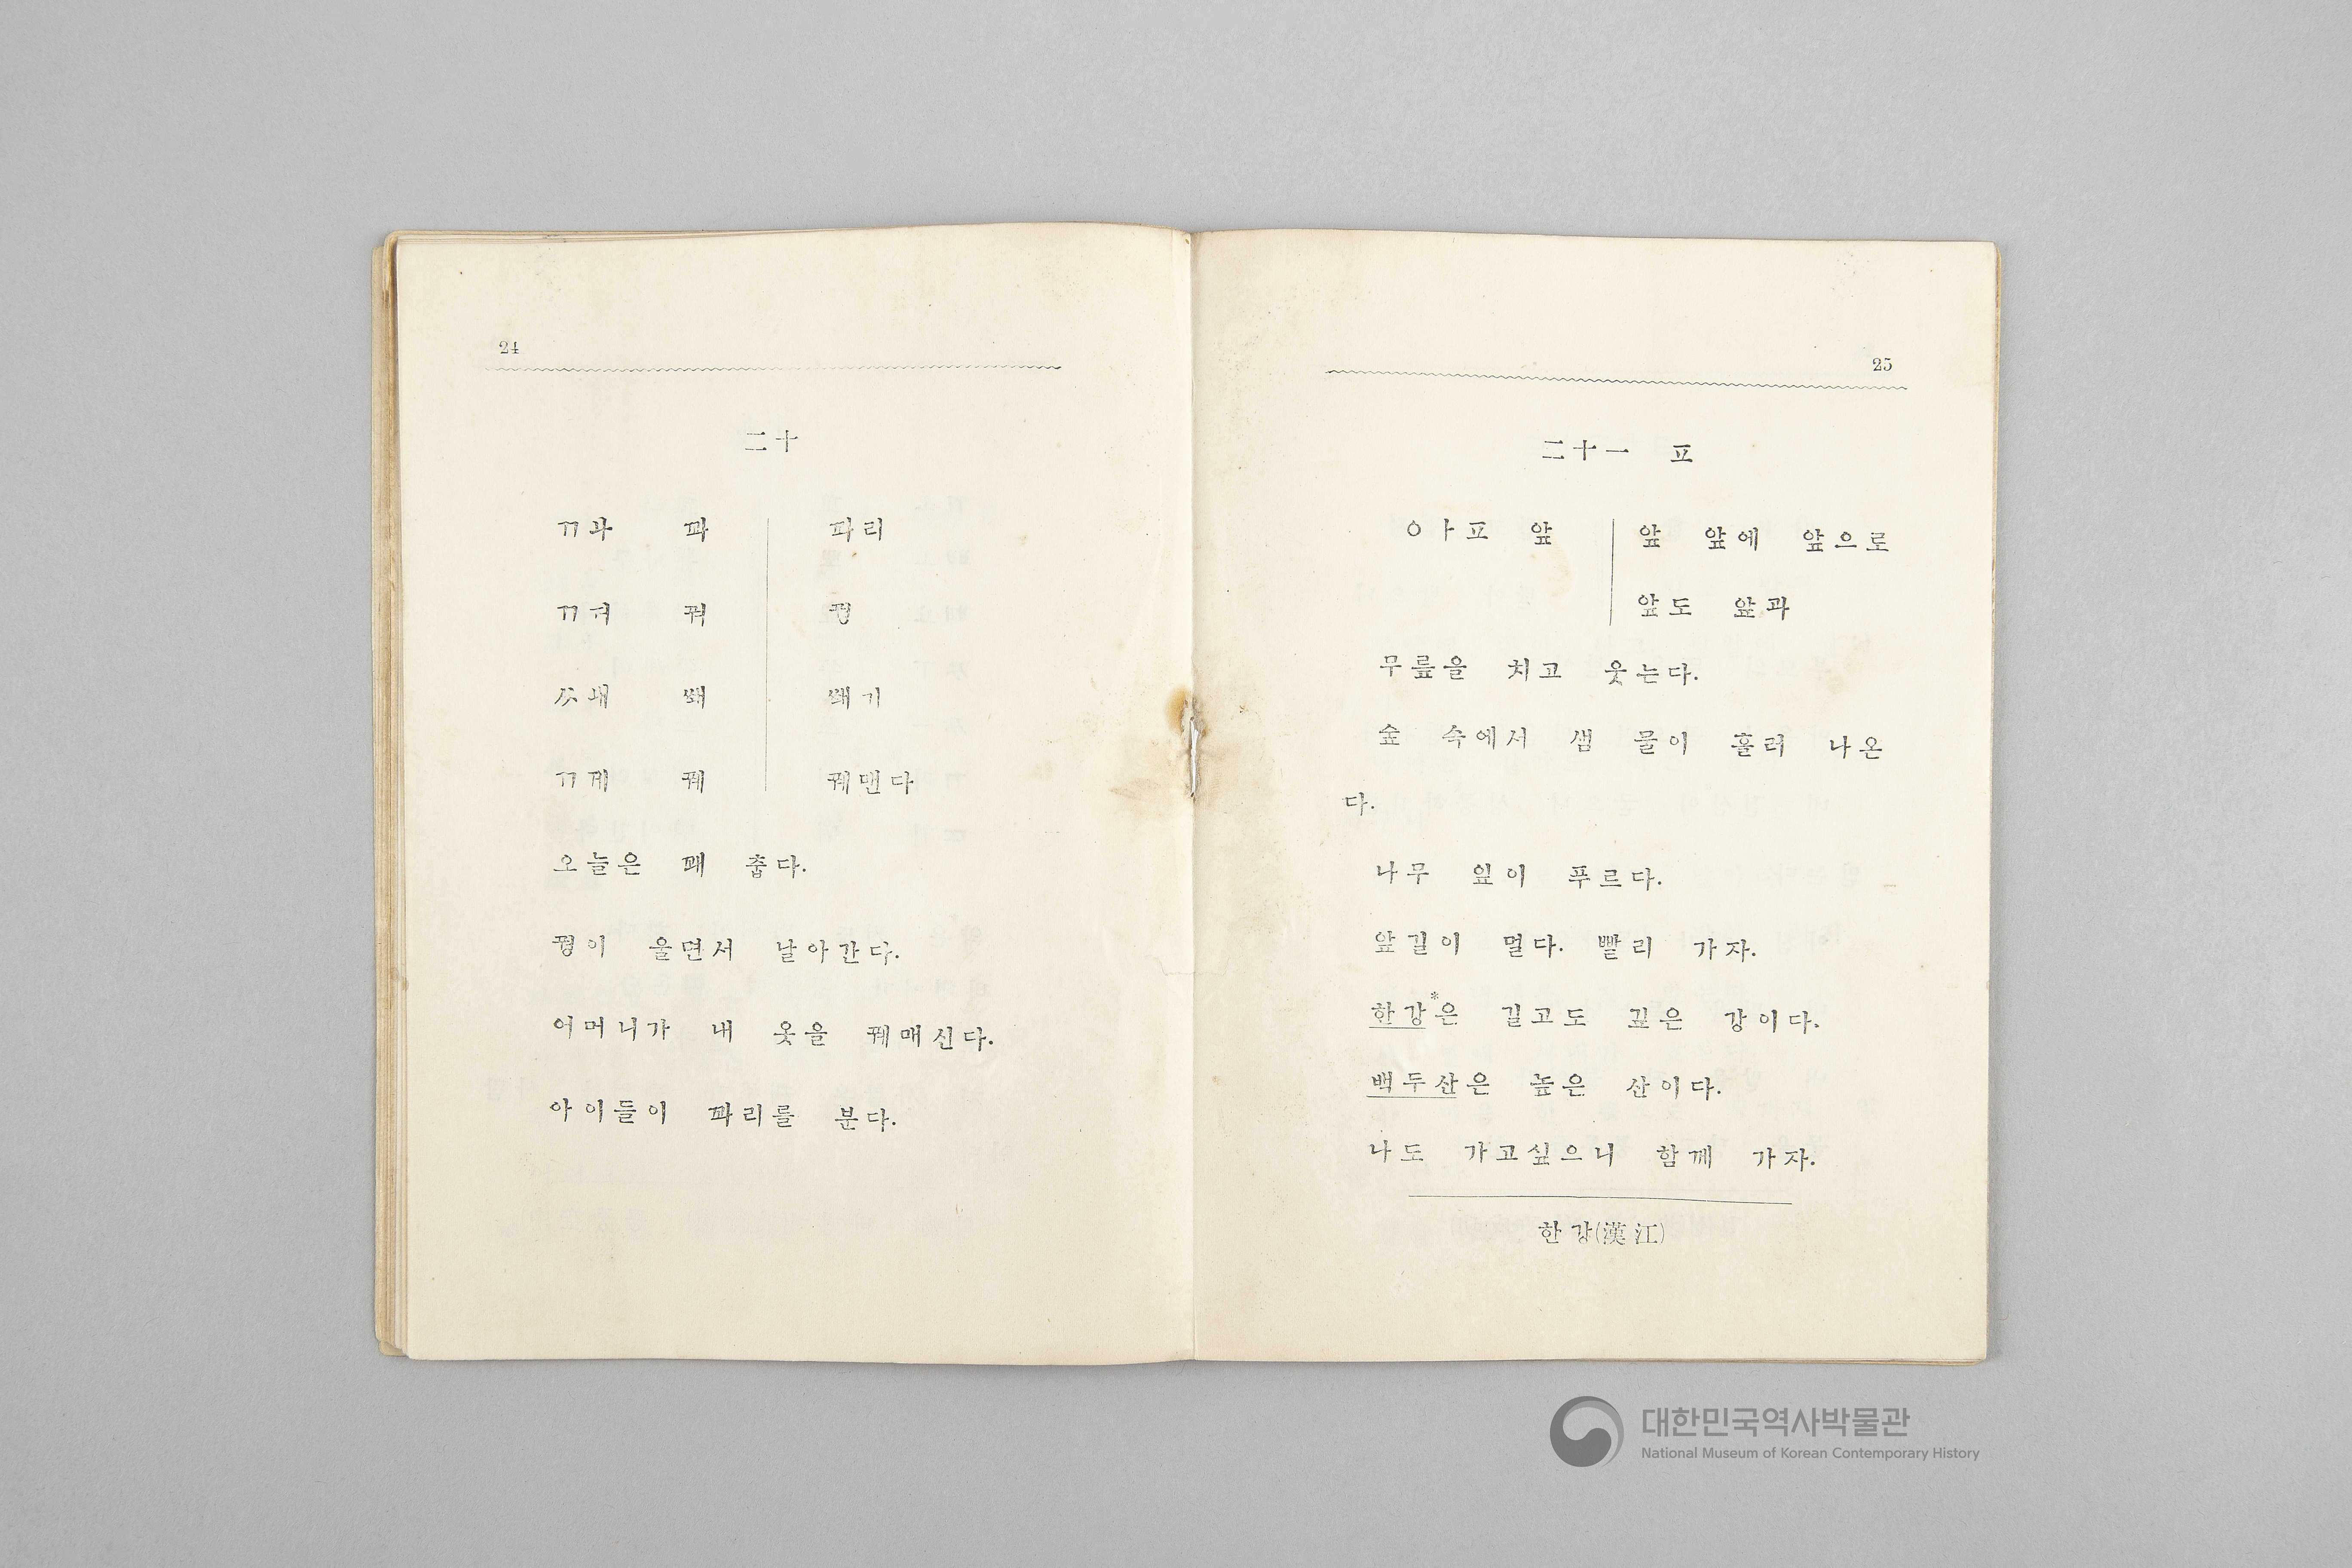 24
二十
ㄲ ㅘ 꽈 꽈리
ㄲ ㅝ 꿔 꿩
ㅆ ㅙ 쐐 쐐기
ㄲ ㅞ 꿰 꿰맨다
오늘은 꽤 춥다.
꿩이 울면서 날아간다.
어머니가 내 옷을 꿰매신다.
아이들이 꽈리를 분다.
25
二十一 ㅍ
ㅇ ㅏ ㅍ 앞 앞 앞에 앞으로
앞도 앞과
무릎을 치고 웃는다.
숲 속에서 샘 물이 흘러 나온
다.
나무 잎이 푸르다.
앞길이 멀다. 빨리 가자.
한강*은 길고도 깊은 강이다.
백두산은 높은 산이다.
나도 가고싶으니 함께 가자.
한강(漢江)
대한민국역사박물관
National Museum of Korean Contemporary History